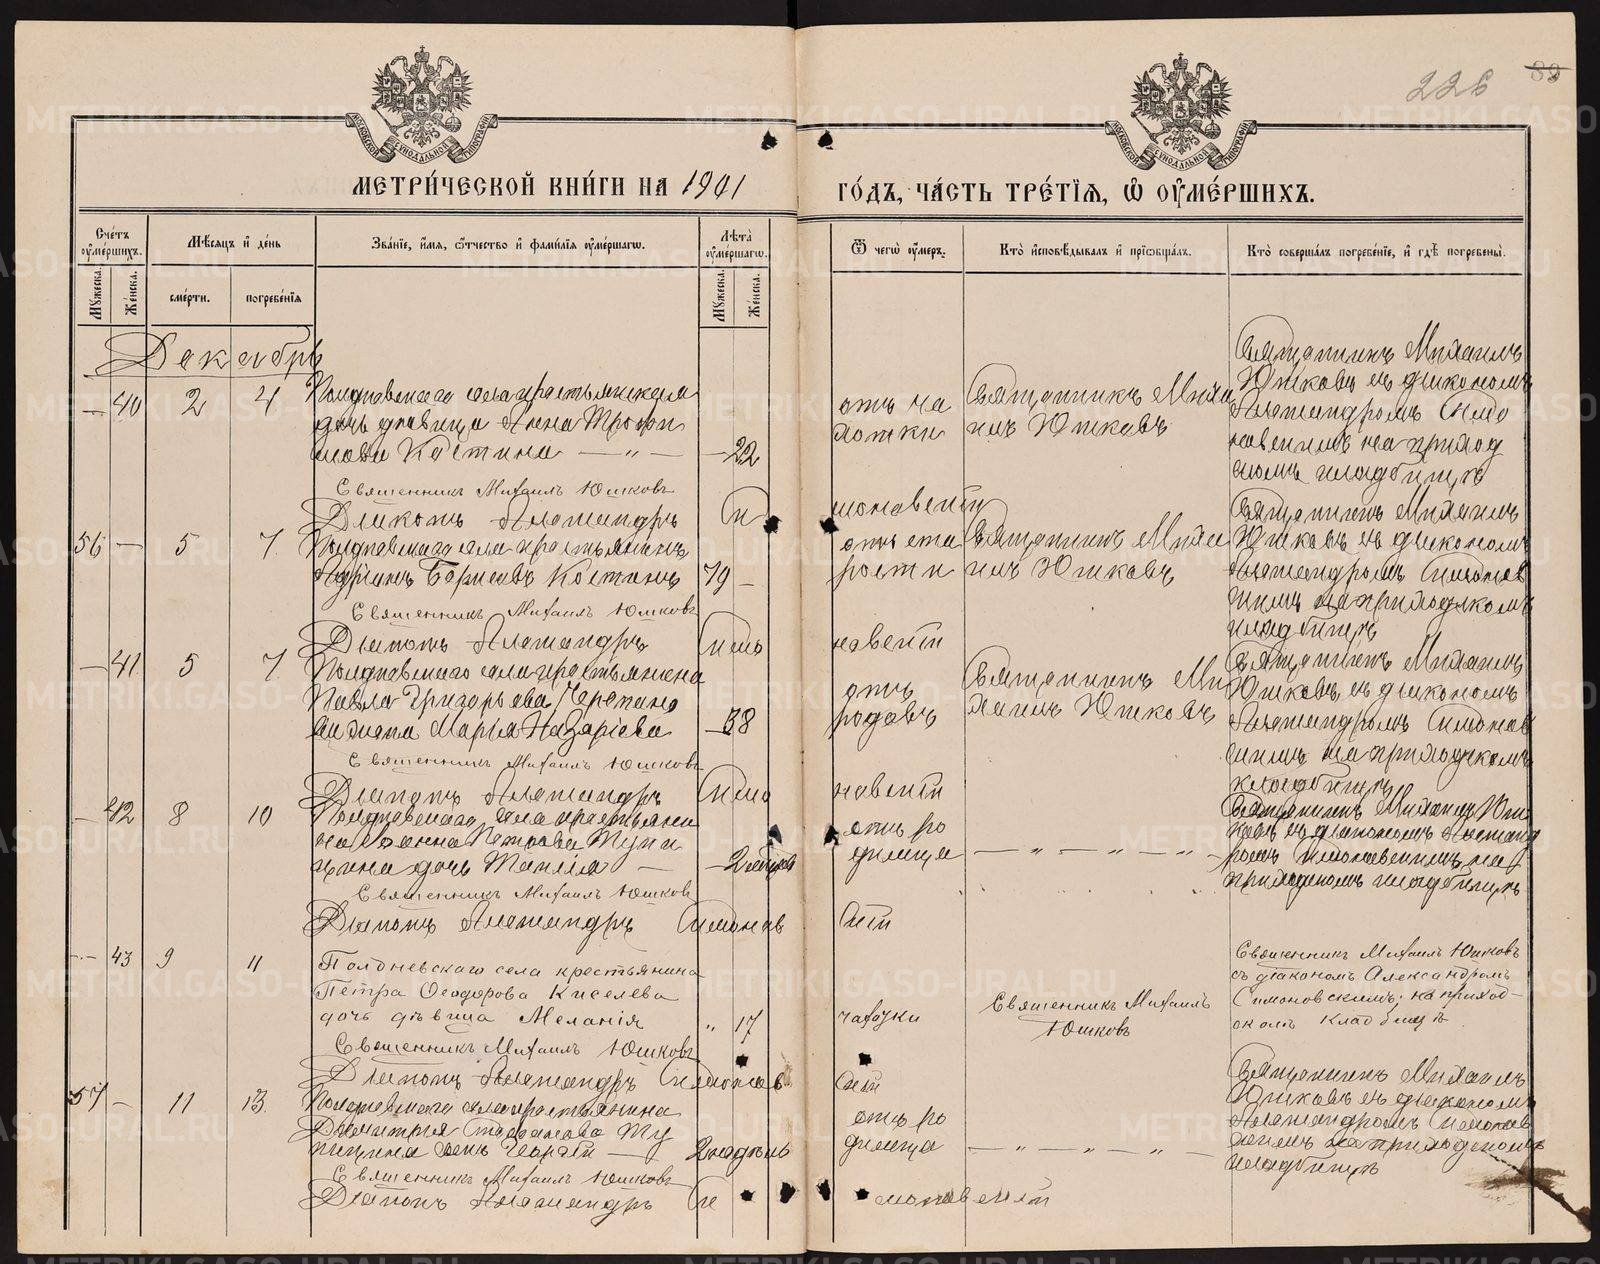 226
МЕТРИ́ЧЕСКОЙ КНИ́ГИ НА 1901
ГО́ДЪ, ЧА́СТЬ ТРЕ́ТЇѦ, Ѽ ОУ҆МЕ́РШИХЪ.
Сче́тъ оу҆ме́ршихъ.
Мѣ́сѧцъ и҆ де́нь
Зва́нїе, и҆́мѧ, ѻ҆́тчество и҆ фами́лїѧ оу҆ме́ршагѡ.
Лѣ́та оу҆ме́ршагѡ.
Ѿ чегѡ̀ оу҆́меръ.
Кто̀ и҆сповѣ́дывалъ и҆ прїѡбща́лъ.
Кто̀ соверша́лъ погребе́нїе, и҆ гдѣ̀ погребены̀.
Мꙋ́жеска.
Же́нска.
сме́рти.
погребе́нїѧ
Мꙋ́жеска.
Же́нска.
Декабрь
— 40 2 4 Полдневскаго села крестьянская
дочь девица Анна Трофи
мова Костина — „ — — 22
отъ ча
хотки
Священникъ Миха
илъ Юшковъ
Священникъ Михаилъ
Юшковъ съ диакономъ
Александромъ Симо
новскимъ на приход
скомъ кладбищѣ
Священникъ Михаилъ Юшковъ
Діаконъ Александръ Си моновскій
56 — 5 7 Полдневскаго села крестьянинъ
Адріанъ Борисовъ Костинъ 79 —
отъ ста
рости
Священникъ Миха
илъ Юшковъ
Священникъ Михаилъ
Юшковъ съ диакономъ
Александромъ Симонов
скимъ на приходскомъ
кладбищѣ
Священникъ Михаилъ Юшковъ
Діаконъ Александръ Симо новскій
— 41 5 7 Полдневскаго села крестьянина
Павла Григорьева Черепано
ва жена Марья Назаріева — 38
отъ
родовъ
Священникъ Ми
хаилъ Юшковъ
Священникъ Михаилъ
Юшковъ съ диакономъ
Александромъ Симонов
скимъ на приходскомъ
кладбищѣ
Священникъ Михаилъ Юшковъ
Діаконъ Александръ Симо новскій
— 42 8 10 Полдневскаго села крестьяни
на Іоанна Петрова Тупи
цина дочь —
отъ ро
димца
— „ — „ — „ —
Священникъ Михаилъ Юш
ковъ съ диакономъ Александ
ромъ Симоновскимъ на
приходскомъ кладбищѣ
Священникъ Михаилъ Юшковъ
Діаконъ Александръ Симонов скій
— 43 9 11 Полдневскаго села крестьянина
Петра Ѳеодорова Киселева
дочь дѣвица Меланія „ 17
чахотки
Священникъ Михаилъ
Юшковъ
Священникъ Михаилъ Юшковъ
съ діакономъ Александромъ
Симоновскимъ, на приход-
скомъ кладбищѣ
Священникъ Михаилъ Юшковъ
Діаконъ Александръ Симонов скій
57 — 11 13 Полдневскаго села крестьянина
Димитрія Ту
пицина сынъ Георгій —
отъ ро
димца
— „ — „ — „ —
Священникъ Михаилъ
Юшковъ съ диакономъ
Александромъ Симонов
скимъ на приходскомъ
кладбищѣ
Священникъ Михаилъ Юшковъ
Діаконъ Александръ Си моновскій